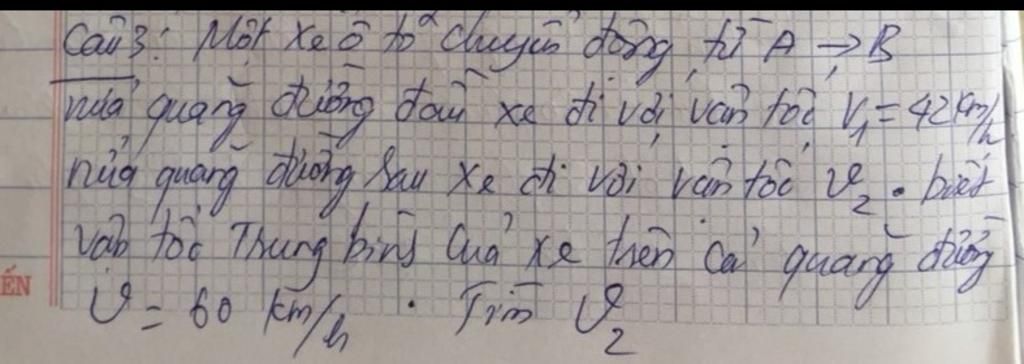 Câu 3: Một xe ô tô chuyển động từ A → B
nửa quãng đường đầu xe đi với vận tốc V₁ = 42 km/h
nửa quãng đường sau xe đi với vận tốc V₂. biết
vận tốc Trung bình của xe trên cả quãng đường
V = 60 km/h. Tìm V₂
ẾN